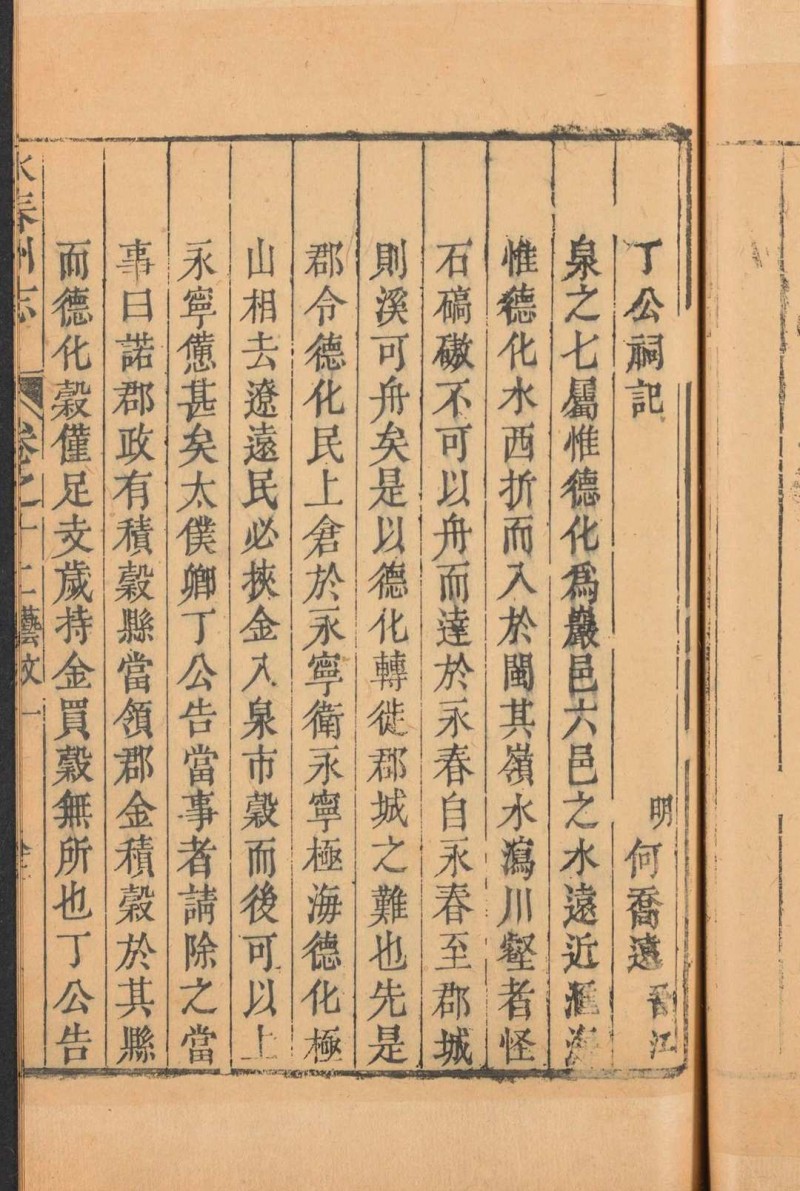 丁公祠記
明 何喬遠 晉江
泉之七屬惟德化為巖邑六邑之水遠近滙海
惟德化水西折而入於閩其嶺水瀉川壑者怪
石碻磝不可以舟而達於永春自永春至郡城
則溪可舟矣是以德化轉徙郡城之難也先是
郡令德化民上倉於永寧衛永寧極海德化極
山相去遼遠民必挾金入泉市穀而後可以上
永寧憊甚矣太僕卿丁公告當事者請除之當
事曰諾郡政有積穀縣當領郡金積穀於其縣
而德化穀僅足支歲持金買穀無所也丁公告
永春州志 卷之十二藝文一